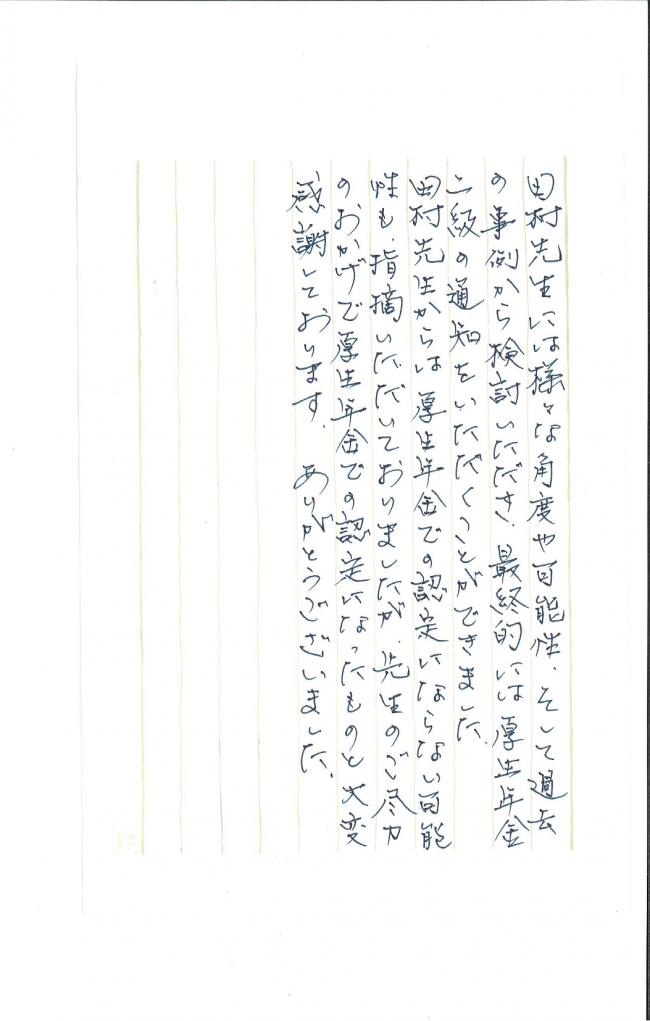 田村先生には様々な角度や可能性、そして過去
の事例から検討いただき、最終的には厚生年金
二級の通知をいただくことができました。
田村先生からは厚生年金での認定にならない可能
性も、指摘いただいておりましたが、先生のご尽力
のおかげで厚生年金での認定になったものと大変
感謝しております。ありがとうございました。